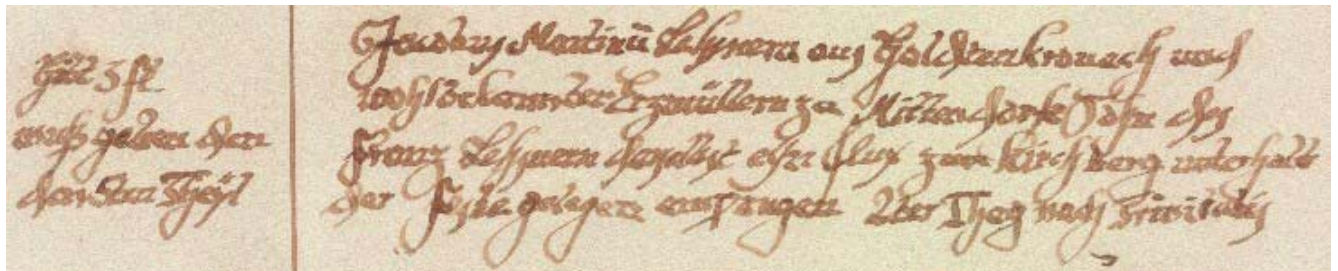 Gilt 5 fl
muss geben den
Theyl
Martinü Lehnern aus Goldtenkronach und
wohlbekannter Erzmüllern zu Mittendorf Sohn des
Franz Lehnern daselbst eyn flur zum Kirchberg unterhalb
der gelegen empfangen 2ter Theg nach trinitatis